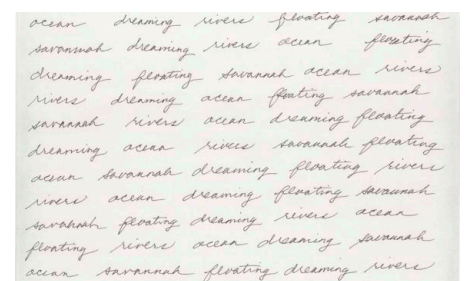 ocean dreaming rivers floating savannah
savannah dreaming rivers ocean floating
dreaming floating savannah ocean rivers
rivers dreaming ocean floating savannah
savannah rivers ocean dreaming floating
dreaming ocean rivers savannah floating
ocean savannah dreaming floating rivers
rivers ocean dreaming floating savannah
savannah floating dreaming rivers ocean
floating rivers ocean dreaming savannah
ocean savannah floating dreaming rivers